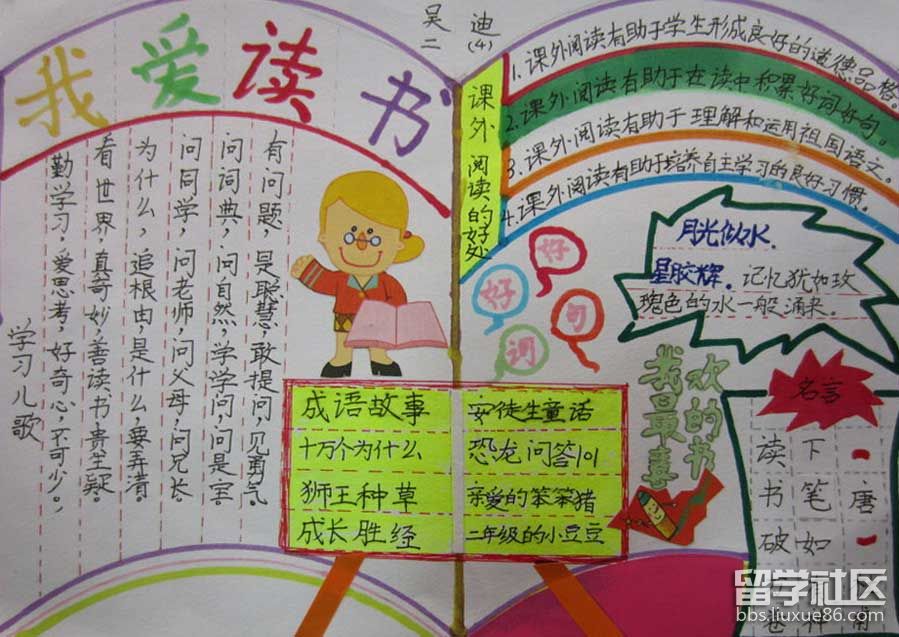 我爱读书
吴迪
二(4)
有问题,是聪慧,敢提问,见勇气
问词典,问自然,学学问,问是
问同学,问老师,问父母,问兄长
为什么,追根由,是什么,要弄清
看世界,真奇妙,善读书,贵生疑
勤学习,爱思考,好奇心,不可少。
学习儿歌
课外阅读的好处
1.课外阅读有助于学生形成良好的道德品格。
2.课外阅读有助于在读中积累好词好句。
3.课外阅读有助于理解和运用祖国语文。
4.课外阅读有助于培养自主学习的良好习惯。
好词好句
月光似水.
星胶辉.记忆犹如玫
瑰色的水一般涌来.
我最喜欢的书
成语故事
十万个为什么
狮王种草
成长胜经
安徒生童话
恐龙问答101
亲爱的笨笨猪
二年级的小豆豆
名言
读书破
下笔如
唐
留学社区
bbs.liuxue86.com